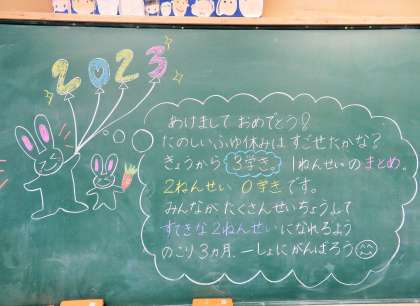 2023
あけまして おめでとう!
たのしい ふゆ休みは すごせたかな?
きょうから 3学き 1ねんせいの まとめ。
2ねんせい 0学き です。
みんなが たくさん せいちょうして
すてきな 2ねんせい になれるよう
のこり 3ヵ月、一しょに がんばろう